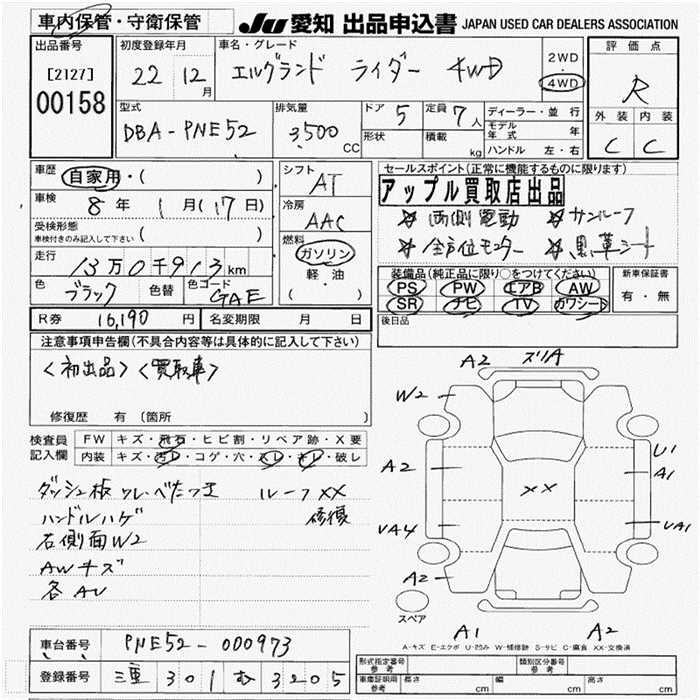 車内保管・守衛保管
JU 愛知 出品申込書 JAPAN USED CAR DEALERS ASSOCIATION
出品番号
[2127]
00158
初度登録年月
22 年 12 月
車名・グレード
エルグランド ライダー 4WD
2WD
・
4WD
評価点
R
外装 内装
C C
型式
DBA-PNE52
排気量
3,500 CC
ドア 5
形状
定員 7 人
積載 kg
ディーラー・並行
モデル年式 年
ハンドル 左・右
車歴 自家用・( )
車検 8年 1月(17日)
受検形態
車検付きのみ記入して下さい ( )
走行
13万0千913km
色 ブラック 色替 色コード GAE
シフト
AT
冷房
AAC
燃料
ガソリン
・
軽油
( )
セールスポイント(正常に機能するものに限ります)
アップル買取店出品
☆ 両側電動 ☆ サンルーフ
☆ 全方位モニター ☆ 黒革シート
装備品(純正品に限り○をつけてください) 新車保証書
PS PW エアB AW
SR ナビ TV カワシート
有・無
後日品
R券 16,190 円 名変期限 月 日
注意事項申告欄(不具合内容等は具体的に記入して下さい)
<初出品> <買取車>
修復歴 有 (箇所 )
検査員記入欄
FW キズ・飛石・ヒビ割・リペア跡・X要
内装 キズ・汚レ・コゲ・穴・スレ・キレ・破レ
ダッシュ板ワレ・べたつき ルーフXX
ハンドルハゲ 修復
右側面W2
AWキズ
各AU
A2 ズリA
W2
A2
U1
A1
XX
UA4
UA1
A2
スペア
A1 A2
A-キズ E-エクボ U-凹み W-補修跡 S-サビ C-腐食 XX-交換済
車台番号 PNE52-000973
登録番号 三重 301 む 3205
形式指定番号 参考
類別区分番号 参考
車庫証明用 参考 長さ cm 幅 cm 高さ cm